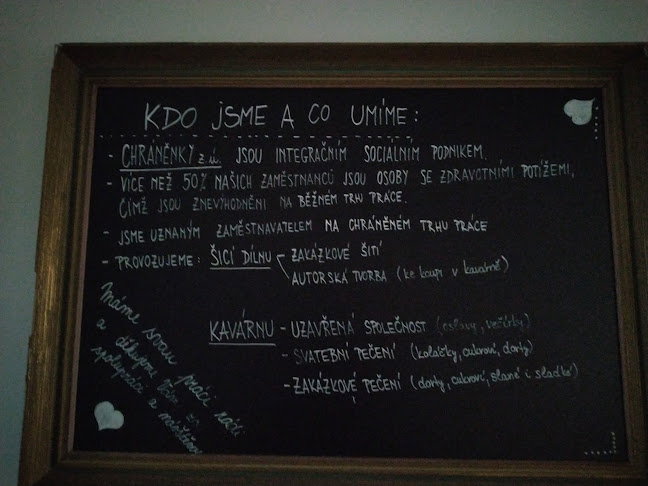 KDO JSME A CO UMÍME:
- CHRÁNĚNKY z.ú. JSOU INTEGRAČNÍM SOCIALNÍM PODNIKEM.
- VÍCE NEŽ 50% NAŠICH ZAMĚSTNANCŮ JSOU OSOBY SE ZDRAVOTNÍMI POTÍŽEMI,
ČÍMŽ JSOU ZNEVÝHODNĚNI NA BĚŽNÉM TRHU PRÁCE.
- JSME UZNANÝM ZAMĚSTNAVATELEM NA CHRÁNĚNÉM TRHU PRÁCE
- PROVOZUJEME: ŠICÍ DÍLNU - ZAKÁZKOVÉ ŠITÍ
AUTORSKÁ TVORBA (ke koupi v kavárně)
KAVÁRNU - UZAVŘENÁ SPOLEČNOST (oslavy, večírky)
- SVATEBNÍ PEČENÍ (koláčky, cukroví, dorty)
- ZAKÁZKOVÉ PEČENÍ (dorty, cukroví, slané i sladké)
Máme svou práci rádi
a děkujeme Vám za
spolupráci a návštěvu